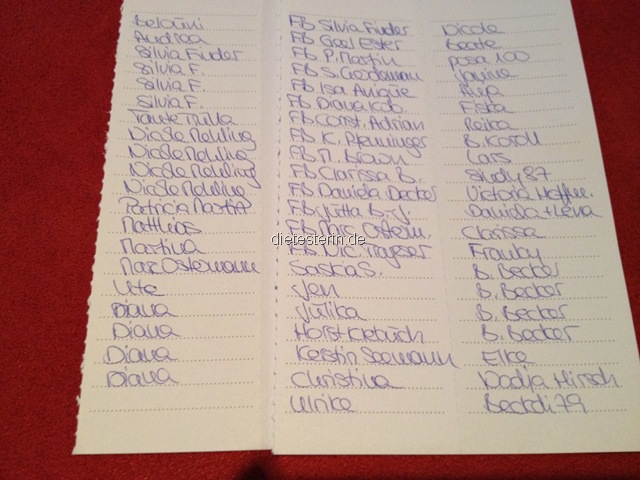 Belouni
Andrea
Silvia Finder
Silvia F.
Silvia F.
Silvia F.
Tante Trulla
Nicole Nolding
Nicole Nolding
Nicole Nolding
Nicole Nolding
Patricia Martin
Matthias
Martina
Marc Ostermann
Ute
Diana
Diana
Diana
Diana
FB Silvia Finder
FB Gael Ester
FB P. Martin
FB S. Goodman
FB Isa
FB Diana Kob.
FB Const. Adrian
FB K. Pfenninger
FB M. Brown
FB Clarissa B.
FB Daniela Decker
FB Jutta B.-J.
FB Marc Osterm.
FB Nic.
Saskia S.
Jen
Julika
Horst Klebuch
Kerstin Seemann
Christina
Ulrike
Nicole
Beate
posa 100
Janine
Anja
Fista
Reika
B. Koroll
Lars
study 87
Victoria Hoffm.
Daniela + Lena
Clarissa
Franky
B. Becker
B. Becker
B. Becker
B. Becker
Elke
Nadja Hirsch
Beckdi79
dietesterin.de